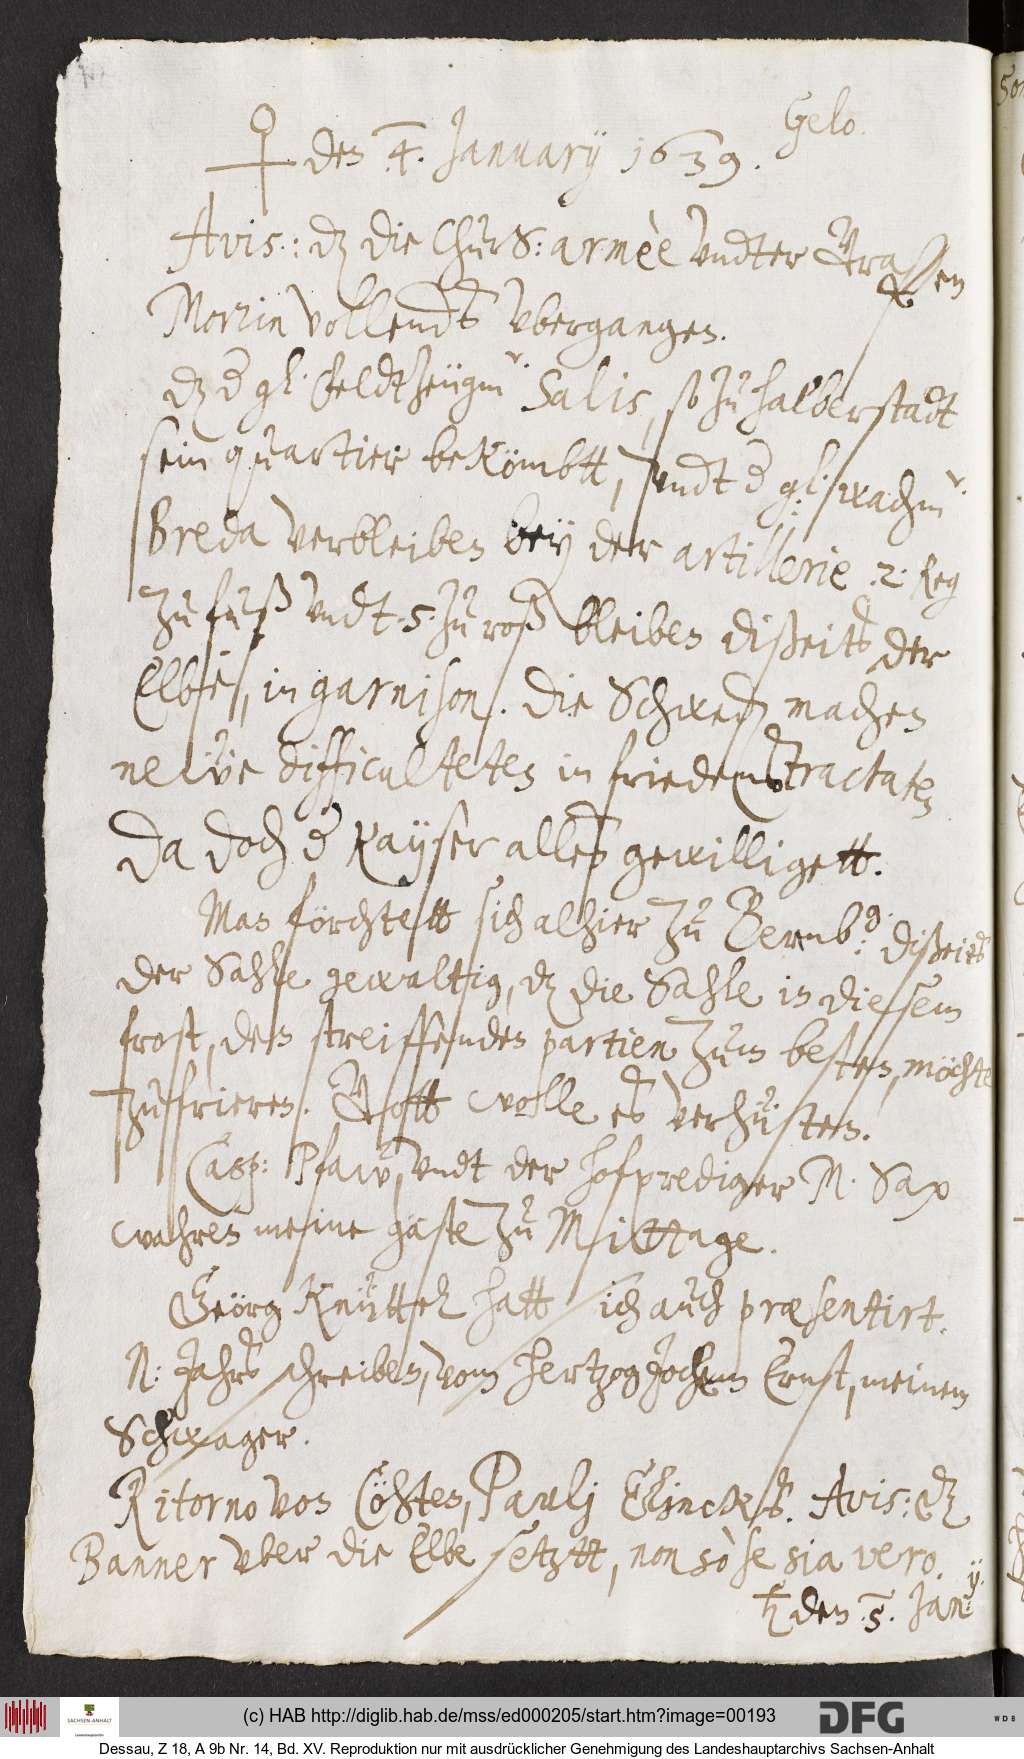 Gelo.
♀ den .4. January 1639.
Avis.: dz die ChurS: armèe vndter Graffen
Morzin vollends vberganngen.
dz d gl. Feldtzeügmr. Salis, so zu halberstadt
sein quartier bekömbtt, vndt d gl. wachmr.
Breda verbleiben bey der artillerie .2. Reg
zu fuß vndt .5. zu roß bleiben dißeits der
Elbe, in garnison. Die Schweden machen
neüe difficulteten in friedenstractaten
da doch d Kayser alles gewilligett.
Man förchtett sich alhier zu Bernb.g: dißeits
der Sahle gewaltig, dz die Sahle in diesem
frost, den streiffenden partien zum besten, möchte
zufrieren. Gott wolle es verhüten.
Casp: Pfaw, vndt der hofprediger M. Sax
wahren meine gäste zu Mittage.
Geörg Knüttel hatt sich auch præsentirt.
N: Jahrs schreiben, vom hertzog Jochem Ernst, meinem
Schwager.
Ritorno von Cöhten, Paulj . Avis: dz
Banner vber die Elbe setztt, non sò se sia vero.
♄ den .5. Jan:y.
(c) HAB http://diglib.hab.de/mss/ed000205/start.htm?image=00193
SACHSEN-ANHALT
DFG
WDB
Dessau, Z 18, A 9b Nr. 14, Bd. XV. Reproduktion nur mit ausdrücklicher Genehmigung des Landeshauptarchivs Sachsen-Anhalt